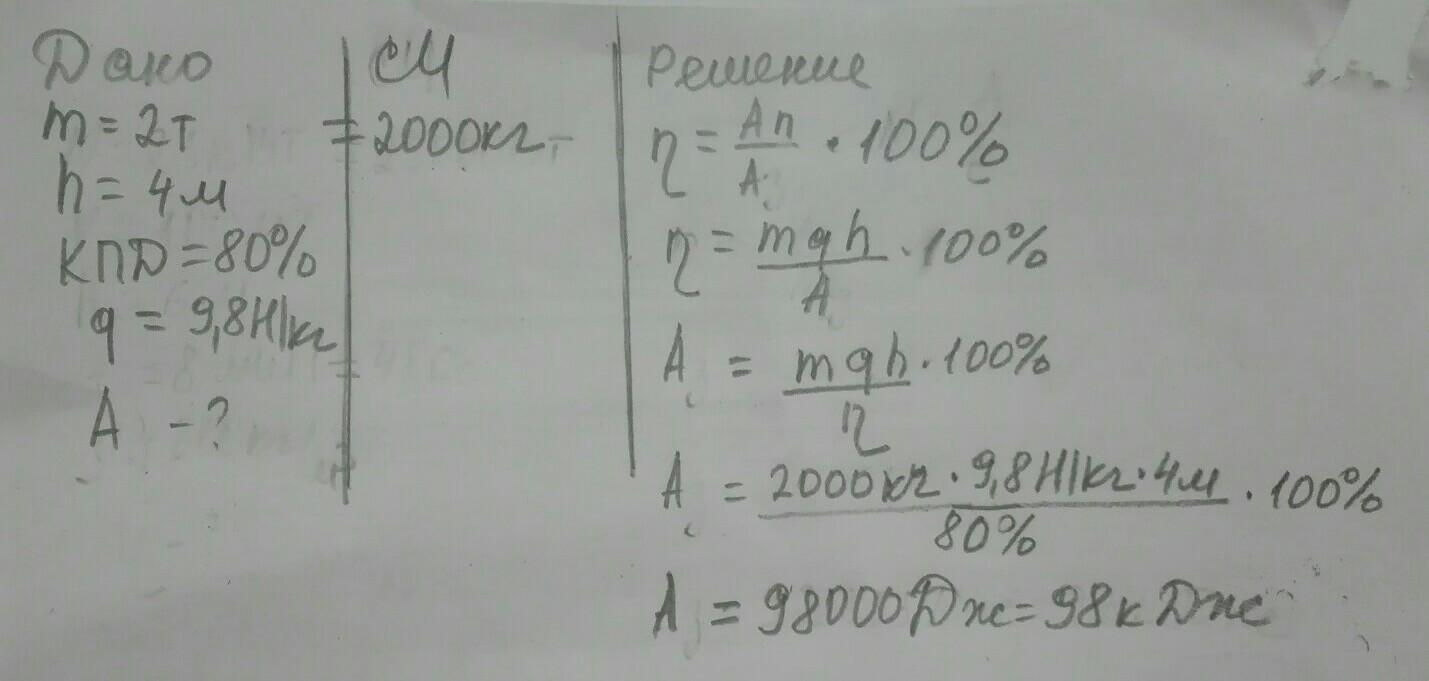 Дано
m = 2т
h = 4м
КПД = 80%
g = 9,8Н/кг
A - ?
СИ
= 2000кг
Решение
η = Aп/A · 100%
η = mgh/A · 100%
A = mgh/η · 100%
A = 2000кг · 9,8Н/кг · 4м/80% · 100%
A = 98000Дж = 98кДж